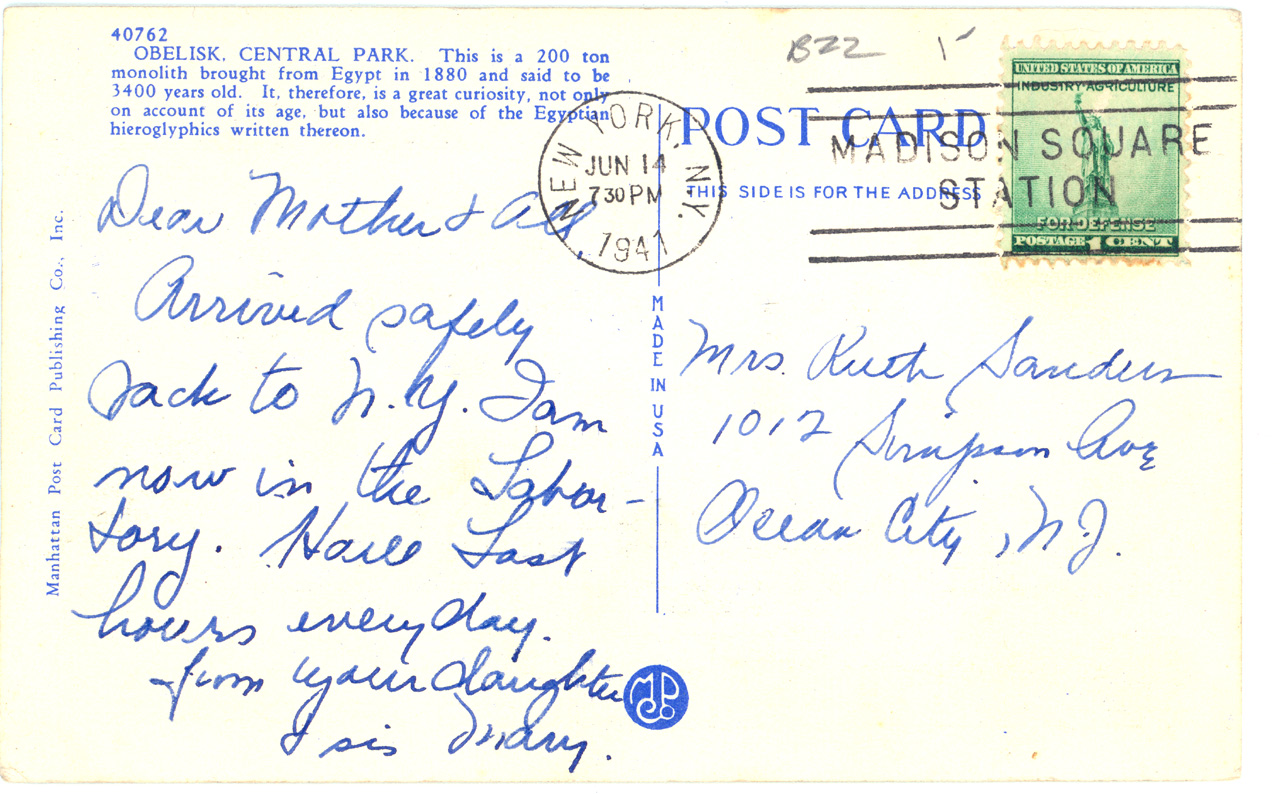 40762
OBELISK, CENTRAL PARK. This is a 200 ton
monolith brought from Egypt in 1880 and said to be
3400 years old. It, therefore, is a great curiosity, not only
on account of its age, but also because of the Egyptian
hieroglyphics written thereon.
Manhattan Post Card Publishing Co., Inc.
Dear Mother & All,
Arrived safely
back to N.Y. I am
now in the Labor-
tory. Have Last
hours every day.
from your daughter
& sis Mary.
B22 1
NEW YORK, N.Y.
JUN 14
730 PM
1941
POST CARD
THIS SIDE IS FOR THE ADDRESS
MADISON SQUARE
STATION
UNITED STATES OF AMERICA
INDUSTRY AGRICULTURE
FOR DEFENSE
POSTAGE 1 CENT
MADE IN USA
Mrs. Ruth Sanders
1012 Simpson Ave
Ocean City, N.J.